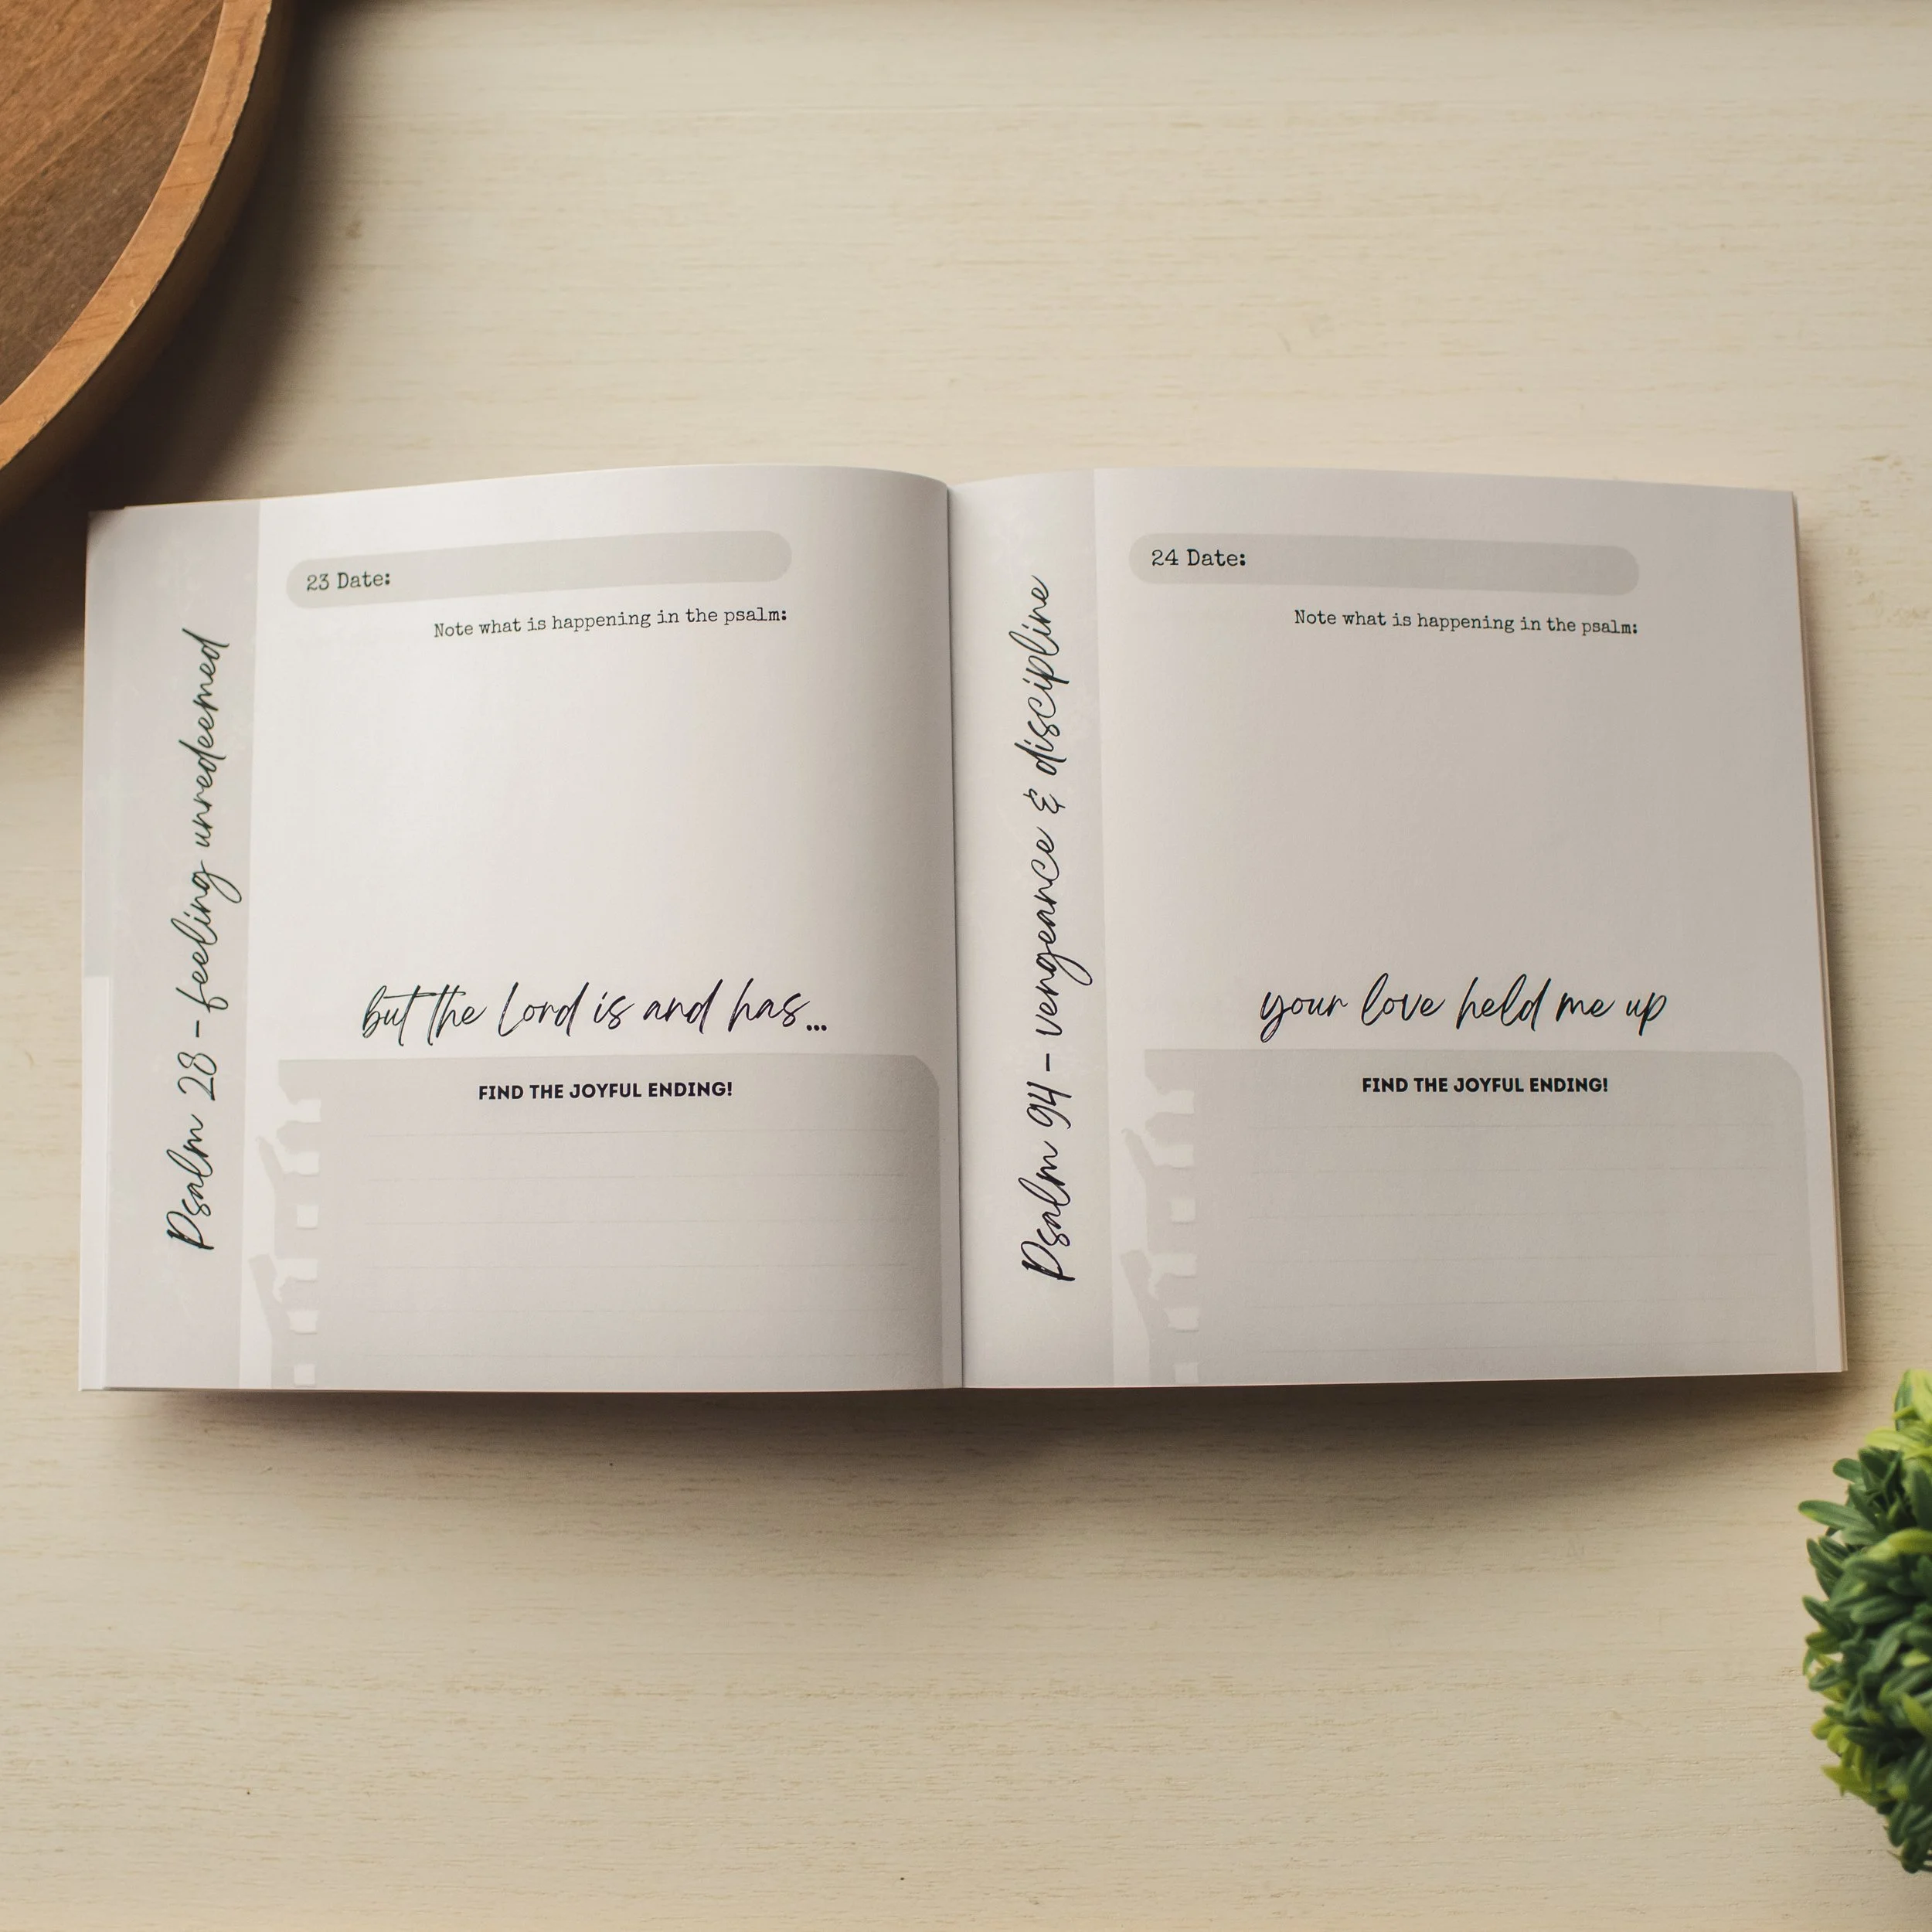 Psalm 28 - feeling unredeemed
23 Date:
Note what is happening in the psalm:
but the Lord is and has...
FIND THE JOYFUL ENDING!
Psalm 94 - vengeance & discipline
24 Date:
Note what is happening in the psalm:
your love held me up
FIND THE JOYFUL ENDING!